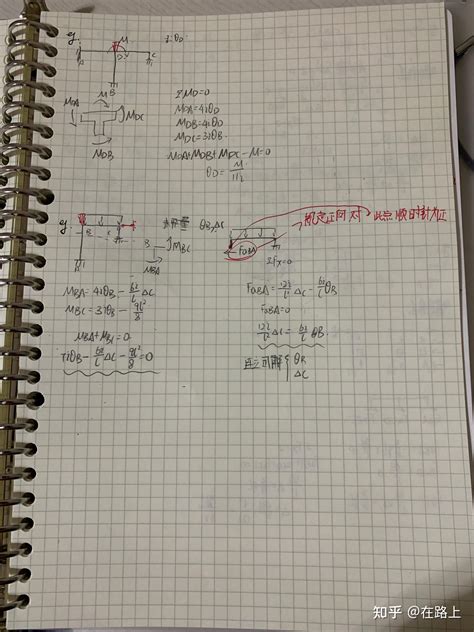 g:
M
D
A
C
B
MDA
MDC
MDB
ΣMD=0
MDA=4iθD
MDB=4iθD
MDC=3iθB
MDA+MDB+MDC-M=0
θD=M/11i
g:
θB,ΔC
规定正向 对
此点顺时针为正
FQBA
ΣFx=0
MBC
MBA
MBA=4iθB-6i/l ΔC
MBC=3iθB-ql²/8
MBA+MBC=0
7iθB-6i/l ΔC-ql²/8=0
FQBA=12i/l² ΔC-6i/l θB
FQBA=0
12i/l² ΔC=6i/l θB
联立可解{θB
ΔC
知乎 @在路上